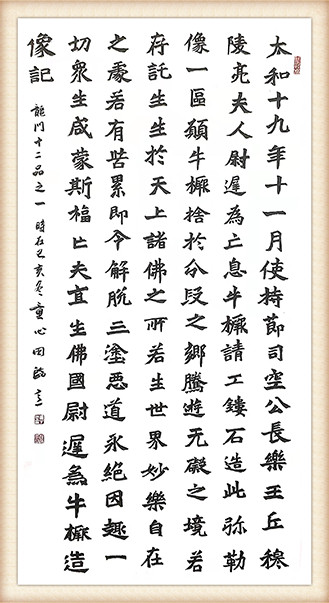 太和十九年十一月使持節司空公長樂王丘穆
陵亮夫人尉遲為亡息牛橛請工鏤石造此弥勒
像一區願牛橛捨於分段之鄉騰遊无礙之境若
存託生生於天上諸佛之所若生世界妙樂自在
之處若有苦累即令解脫三塗惡道永絕因趣一
切眾生咸蒙斯福亡夫宜生佛國尉遲為牛橛造
像記
龍門十二品之一時在己亥冬童心田